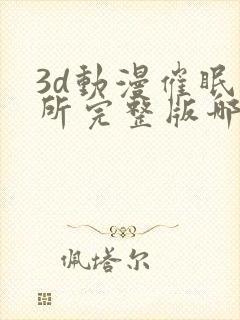 3d動漫催眠
所完整版哪
佩塔尔